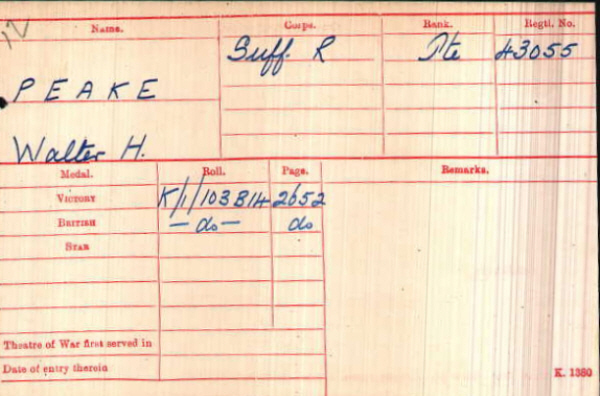 12
Name. Corps. Rank. Regtl. No.
Suff. R Pte 43055
PEAKE
Walter H.
Medal. Roll. Page. Remarks.
VICTORY K/1/103B14 2652
BRITISH — do — do
STAR
Theatre of War first served in
Date of entry therein
K. 1380